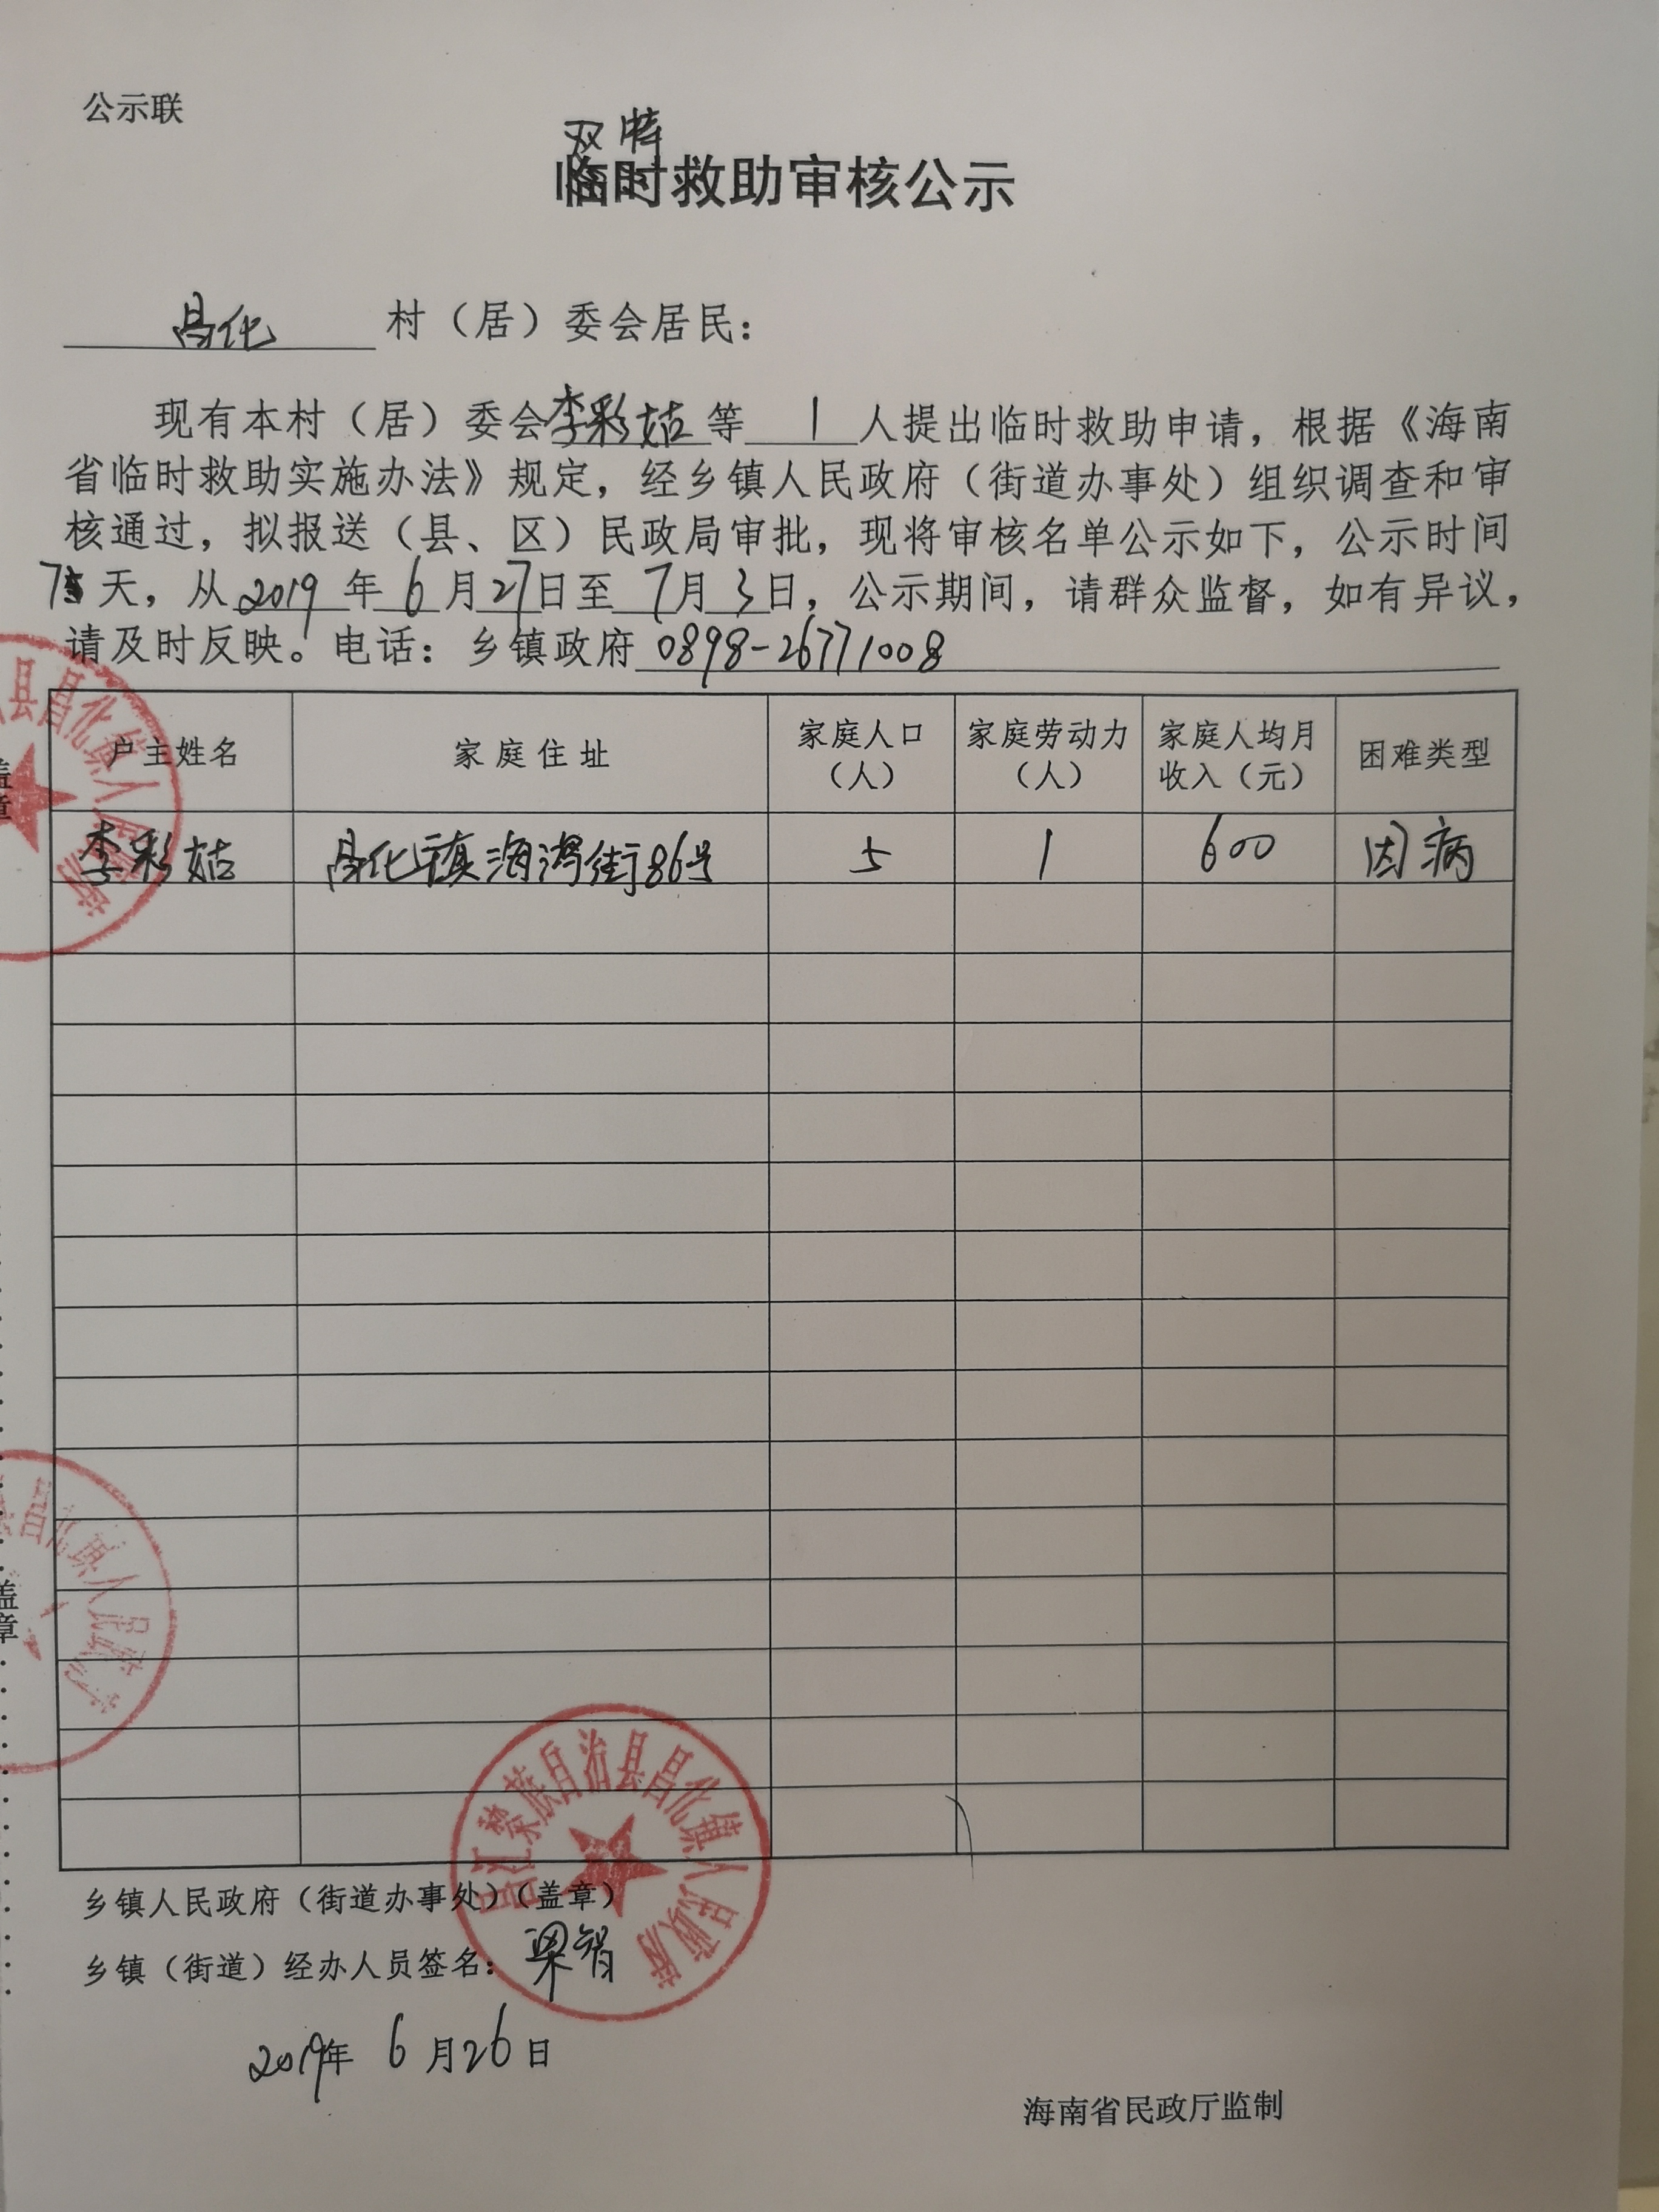 公示联
双特
临时救助审核公示
昌化 村（居）委会居民：
现有本村（居）委会李彩姑等 1 人提出临时救助申请，根据《海南
省临时救助实施办法》规定，经乡镇人民政府（街道办事处）组织调查和审
核通过，拟报送（县、区）民政局审批，现将审核名单公示如下，公示时间
7天，从2019年6月27日至7月3日，公示期间，请群众监督，如有异议，
请及时反映。电话：乡镇政府 0898-26771008
户主姓名 家庭住址 家庭人口（人） 家庭劳动力（人） 家庭人均月收入（元） 困难类型
李彩姑 昌化镇海湾街86号 5 1 600 因病
县昌化镇人民政府
盖章
昌化镇人民政府
盖章
昌江黎族自治县昌化镇人民政府
乡镇人民政府（街道办事处）（盖章）
乡镇（街道）经办人员签名：梁智
2019年6月26日
海南省民政厅监制